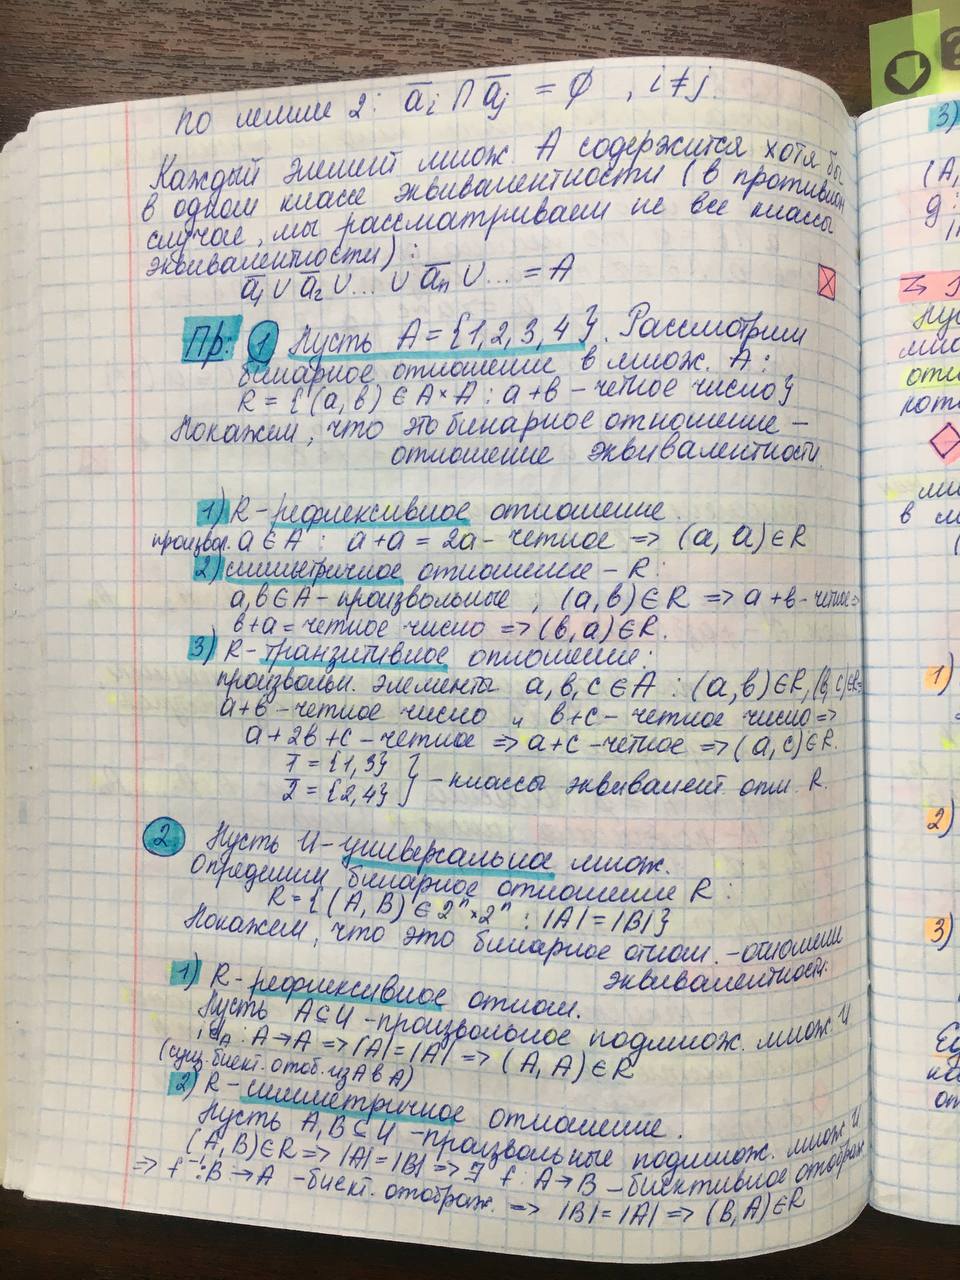 по лемме 2: a̅ᵢ ∩ a̅ⱼ = ∅ , i≠j.
Каждый элемент множ. A содержится хотя бы
в одном классе эквивалентности (в противном
случае, мы рассматриваем не все классы
эквивалентности):
a̅₁ ∪ a̅₂ ∪ ... ∪ a̅ₙ ∪ ... = A
Пр: 1 Пусть A = {1,2,3,4}. Рассмотрим
бинарное отношение в множ. A:
R = {(a,b) ∈ A×A : a+b – четное число}
Покажем, что это бинарное отношение –
отношение эквивалентности.
1) R - рефлексивное отношение.
произвол. a ∈ A : a+a = 2a - четное => (a, a) ∈ R
2) симметричное отношение – R:
a,b ∈ A – произвольные ; (a,b) ∈ R => a+b - четное =>
b+a = четное число => (b,a) ∈ R.
3) R - транзитивное отношение:
произвольн. элементы a,b,c ∈ A : (a,b) ∈ R, (b,c) ∈ R =>
a+b - четное число и b+c - четное число =>
a+2b+c - четное => a+c - четное => (a,c) ∈ R.
1̅ = {1,3}
2̅ = {2,4} } - классы эквивалент. отн. R.
2. Пусть U - универсальное множ.
Определим бинарное отношение R:
R = {(A,B) ∈ 2ᵁ × 2ᵁ : |A| = |B|}
Покажем, что это бинарное отнош. - отношение
эквивалентности.
1) R - рефлексивное отнош.
Пусть A ⊆ U - произвольное подмнож. множ. U
id_A : A → A => |A| = |A| => (A, A) ∈ R
(сущ. биект. отоб. из A в A)
2) R - симметричное отношение.
Пусть A,B ⊆ U - произвольные подмнож. множ U
(A,B) ∈ R => |A| = |B| => ∃ f : A → B - биективное отображ.
=> f⁻¹: B → A - биект. отображ. => |B| = |A| => (B,A) ∈ R
3)
(A,
g:
Пус
мно
отн
кото
в с
1)
2)
3)